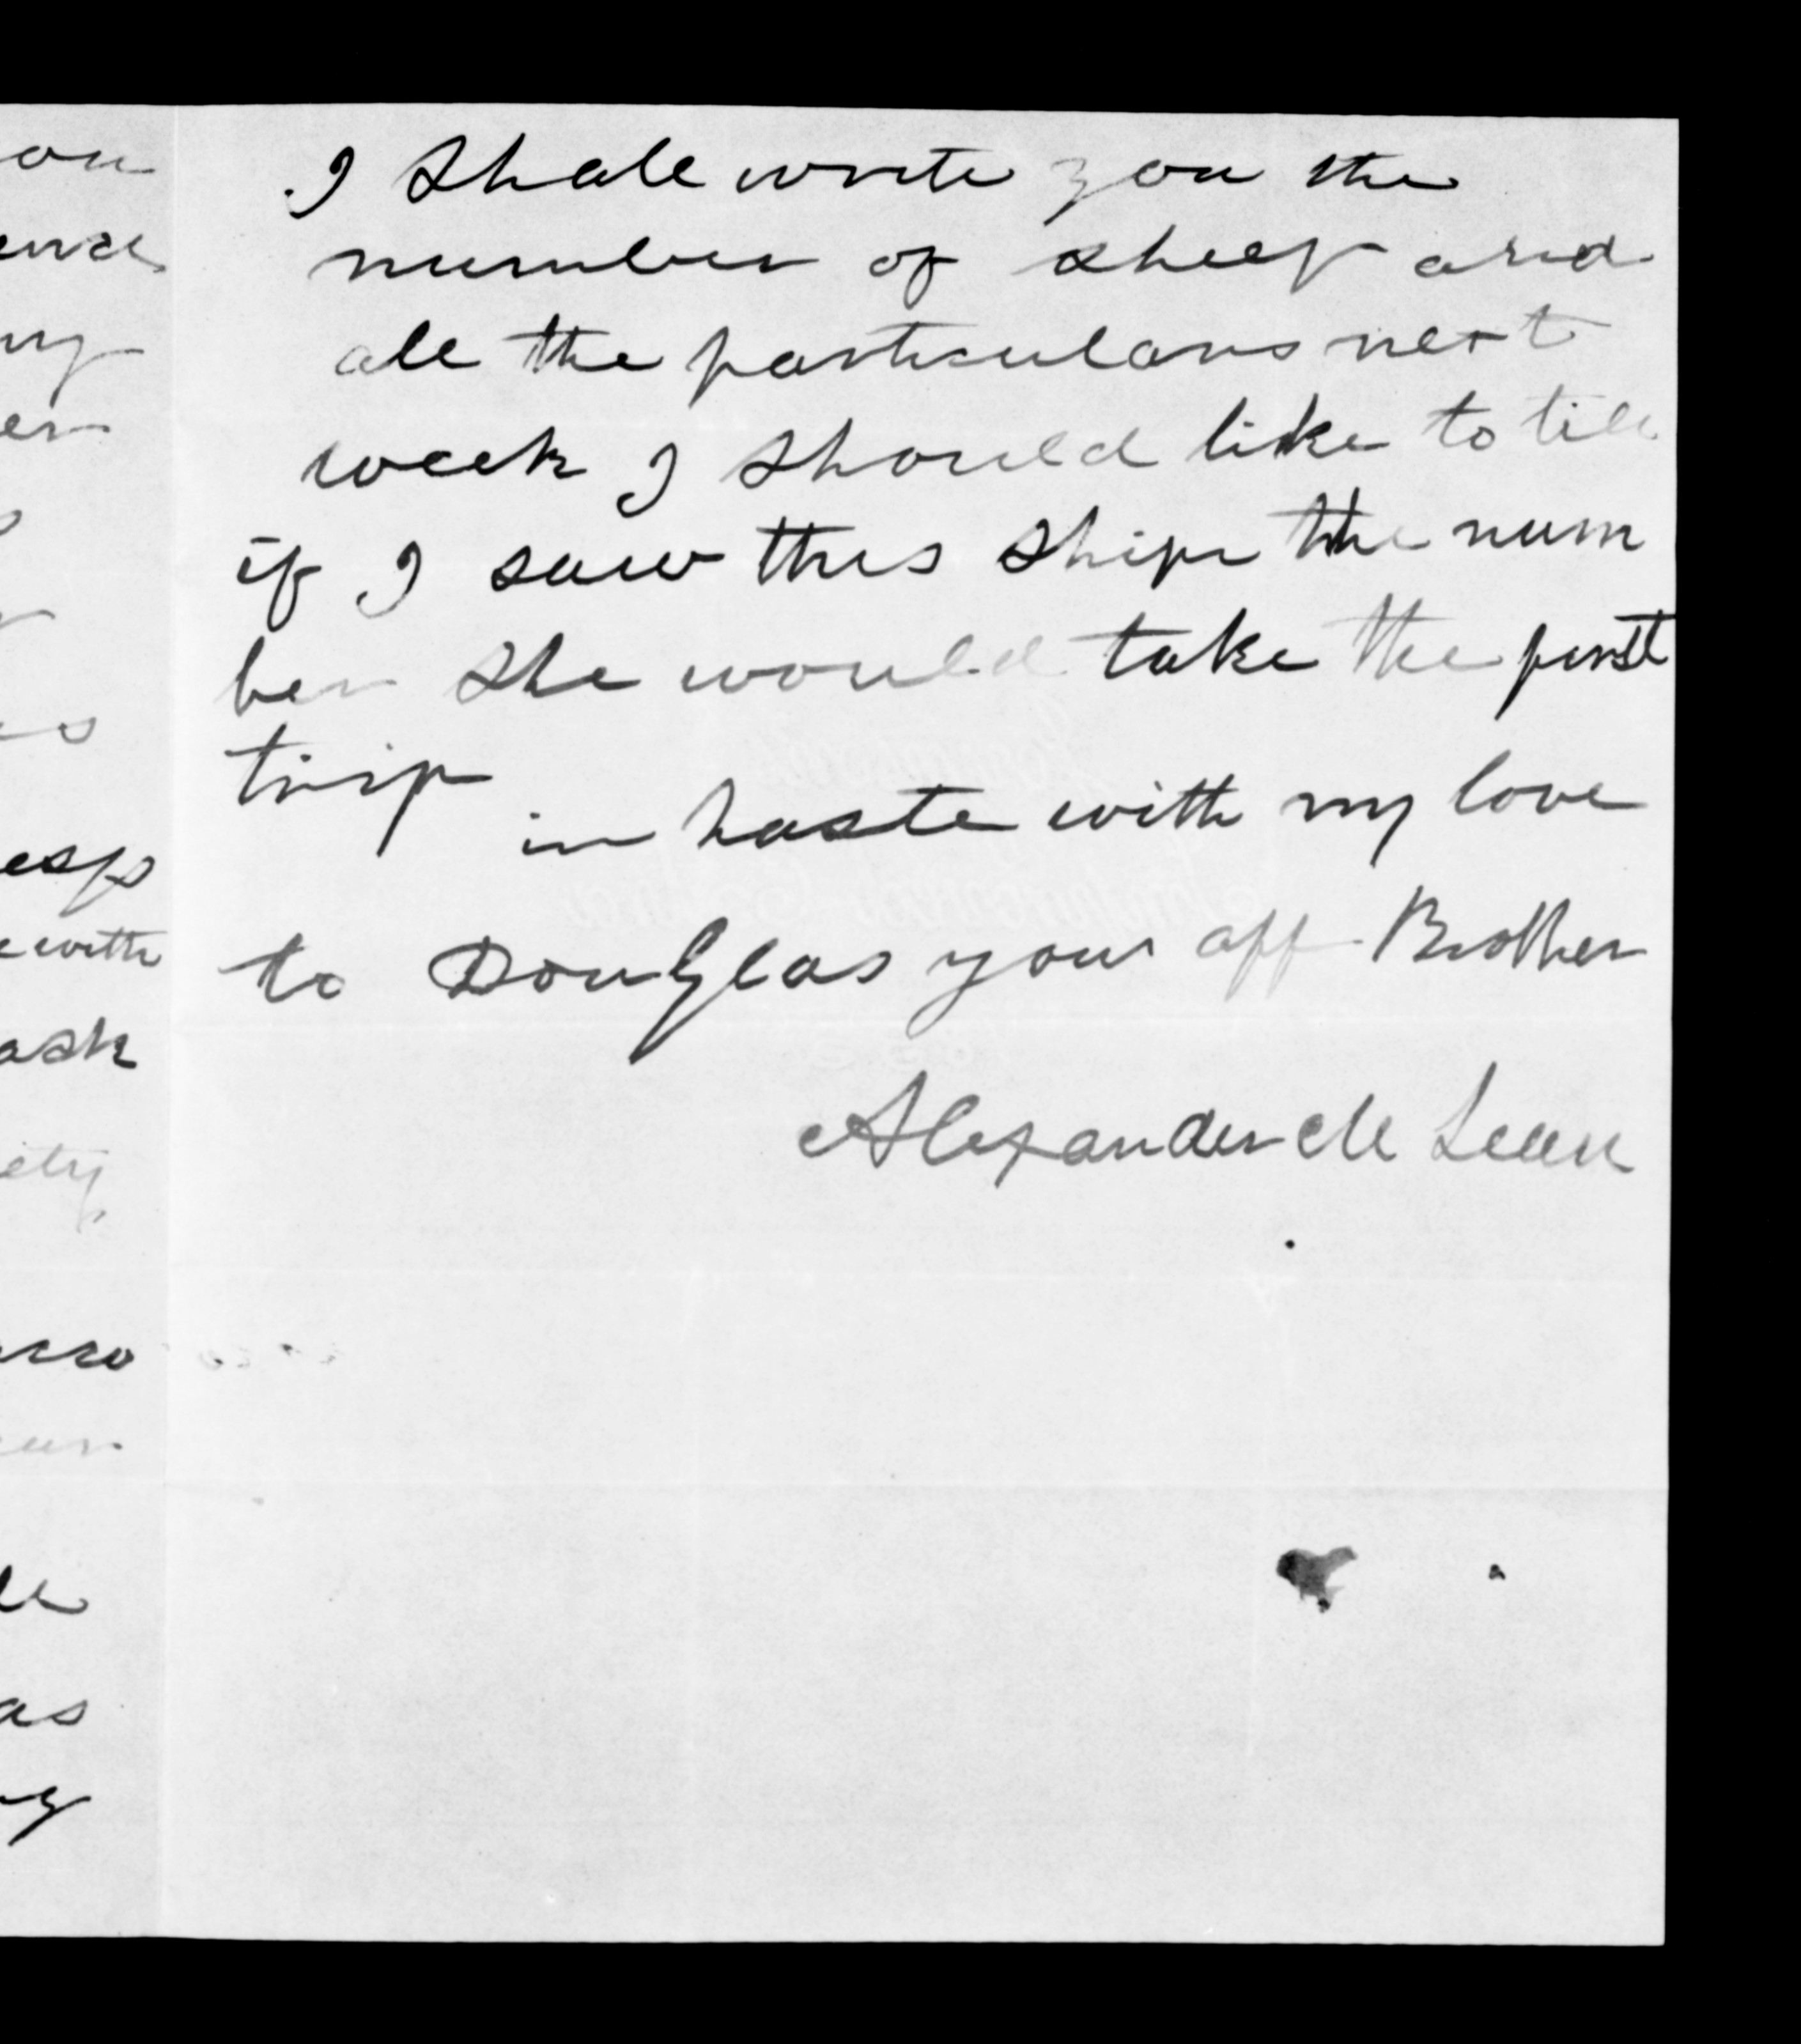 I Shall write you the
number of sheep and
all the particulars next
week I should like to till
if I saw this Ship the num
ber She would take the first
trip
in haste with my love
to Douglas your aff Brother
Alexander Mc Lean
ou
ence
ny
er
es
esp
with
ask
ety
as